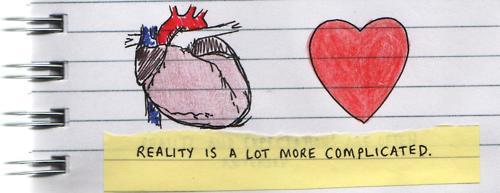 REALITY IS A LOT MORE COMPLICATED.